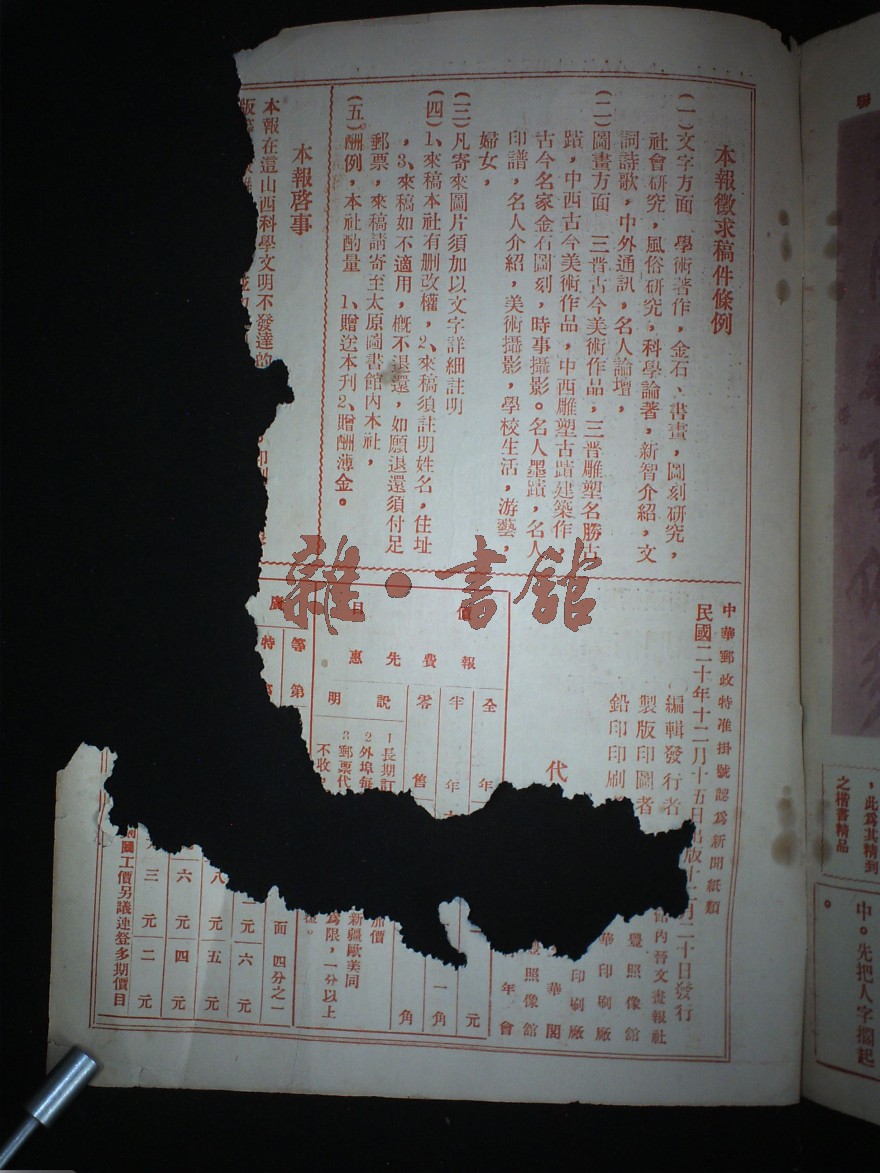 本報徵求稿件條例
(一)文字方面　學術著作，金石、書畫，圖刻研究，
社會研究，風俗研究，科學論著，新智介紹，文
詞詩歌，中外通訊，名人論壇，
(二)圖畫方面　三晋古今美術作品，三晋雕塑名勝古
蹟，中西古今美術作品，中西雕塑古蹟建築作，
古今名家金石圖刻，時事攝影。名人墨蹟，名人
印譜，名人介紹，美術攝影，學校生活，游藝，
婦女，
(三)凡寄來圖片須加以文字詳細註明
(四)1、來稿本社有删改權，2、來稿須註明姓名，住址
，3、來稿如不適用，概不退還，如願退還須付足
郵票，來稿請寄至太原圖書館內本社，
(五)酬例，本社酌量　1、贈送本刋2、贈酬薄金。
本報啓事
本報在這山西科學文明不發達的
版
中華郵政特准掛號認爲新聞紙類
民國二十年十二月十五日出版十二月二十日發行
編輯發行者
館內晉文畫報社
製版印圖者
豐照像館
鉛印印刷
華印刷廠
代
印刷廠
華閣
豐照像館
年會
價目
報費先惠
全年
元
半年
一角
零售
角
說明
1長期訂
加價
2外埠每
新疆歐美同
3郵票代
爲限，一分以上
不收
廣
等第
面四分之一
特
二元六元
八元五元
六元四元
三元二元
圖工價另議連登多期價目
，此爲其精到
之楷書精品
中。先把人字擱起
。
雜·書館